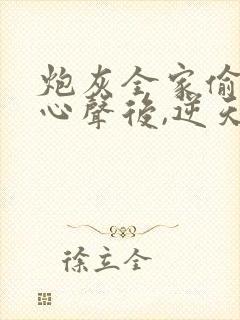 炮灰全家偷
心聲後,逆天
徐立全